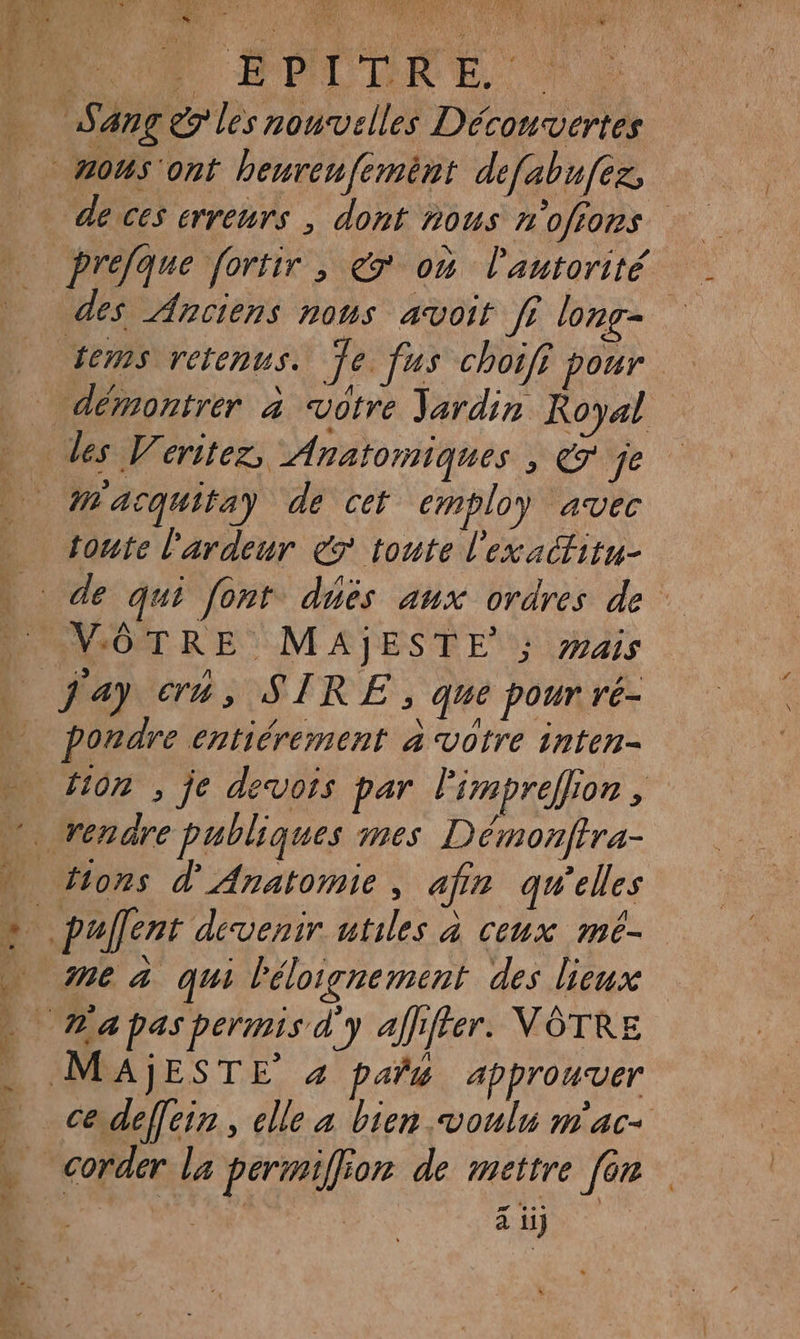 EPITRE.
Sang & les nouvelles Découvertes
nous ont heureuſemènt deſabuſez,
de ces erreurs , dont nous n'oſions
preſque ſortir , & où l'autorité
des Anciens nous avoit ſi long-
tems retenus. Je fus choiſi pour
démontrer à vôtre Jardin Royal
les Veritez, Anatomiques , & je
m'acquitay de cet employ avec
toute l'ardeur & toute l'exactitu-
de qui ſont dûës aux ordres de
VÔTRE MAJESTE' ; mais
j'ay crû, SIRE, que pour ré-
pondre entiérement à vôtre inten-
tion , je devois par l'impreſſion ,
rendre publiques mes Démonſtra-
tions d'Anatomie , afin qu'elles
puſſent devenir utiles à ceux mê-
me à qui l'éloignement des lieux
n'a pas permis d'y aſſiſter. VÔTRE
MAJESTE' a parû approuver
ce deſſein , elle a bien voulu m'ac-
corder la permiſſion de mettre ſon
ã iij